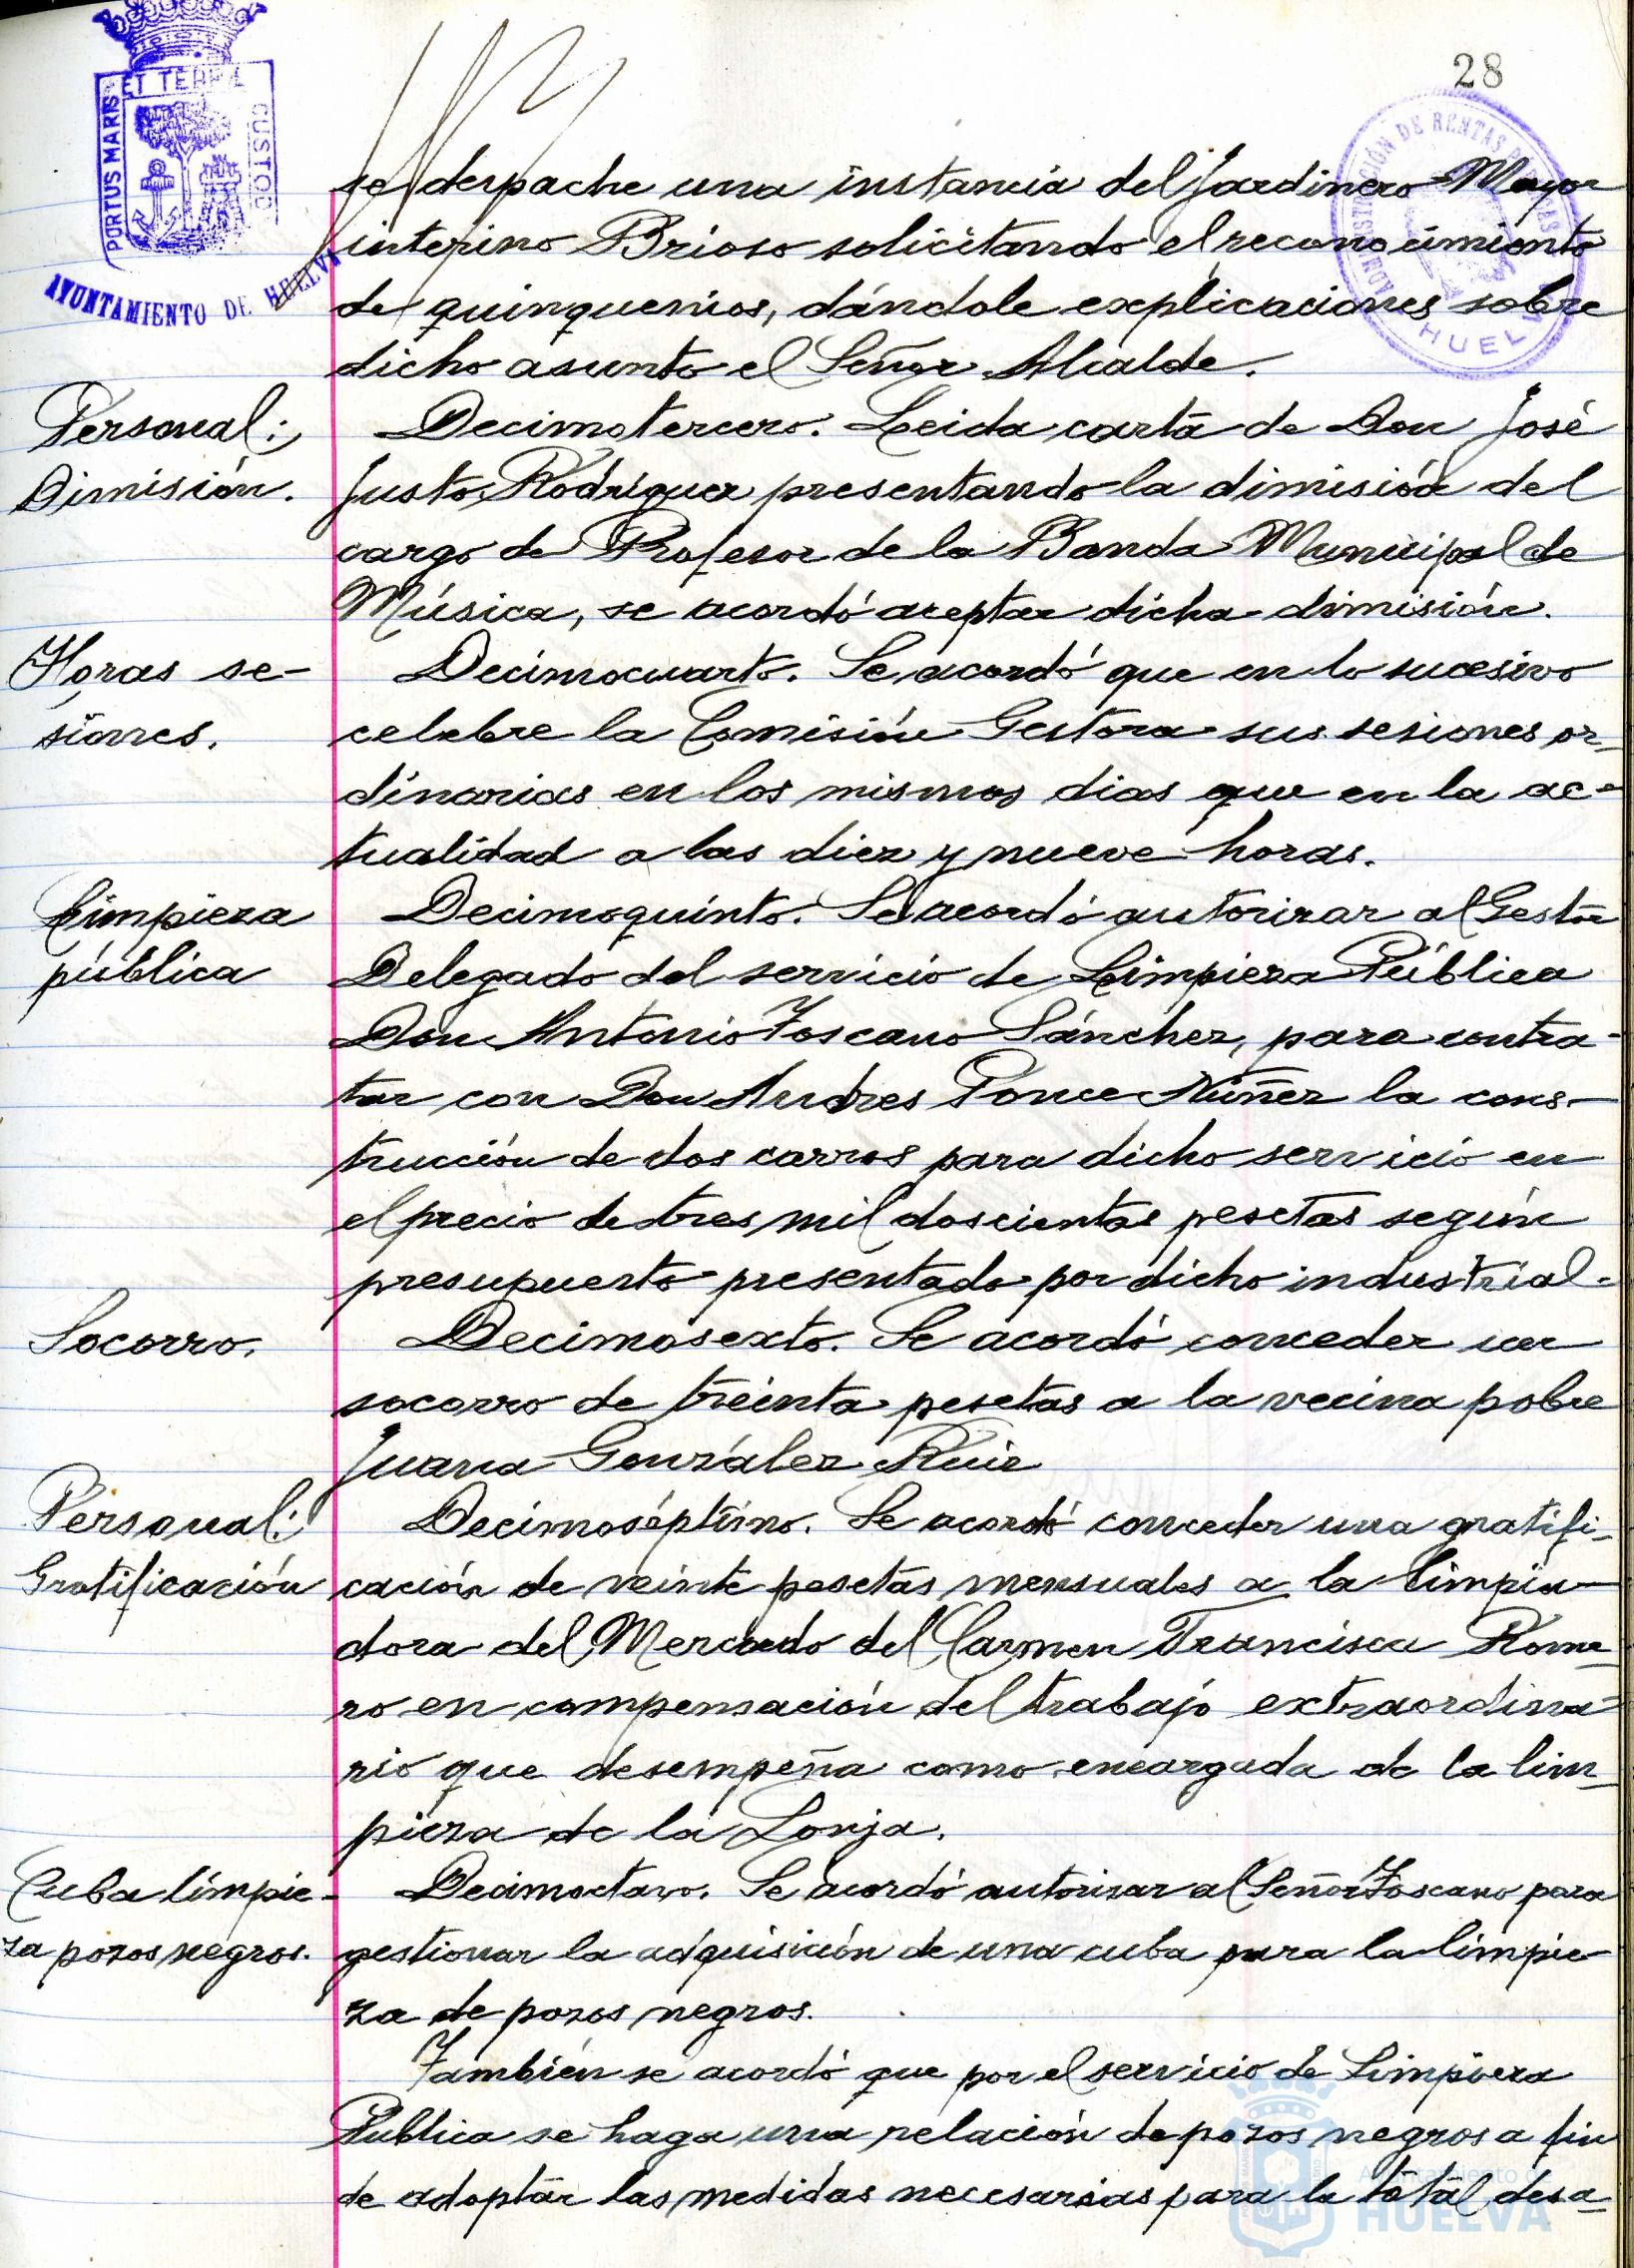 28
ET TERRÆ
PORTUS MARIS
CUSTOD
AYUNTAMIENTO DE HUELVA
HUELV
se despache una instancia del Jardinero Mayor
interino Brioso solicitando el reconocimiento
de quinquenios, dándole explicaciones sobre
dicho asunto el Señor Alcalde.
Personal:
Dimisión.
Decimotercero. Leida carta de Don José
Justo Rodriguez presentando la dimisión del
cargo de Profesor de la Banda Municipal de
Música, se acordó aceptar dicha dimisión.
Horas se-
siones.
Decimocuarto. Se acordó que en lo sucesivo
celebre la Comisión Gestora sus sesiones or-
dinarias en los mismos dias que en la ac-
tualidad a las diez y nueve horas.
Limpieza
pública
Decimoquinto. Se acordó autorizar al Gestor
Delegado del servicio de Limpieza Pública
Don Antonio Toscano Sánchez, para contra-
tar con Don Andres Ponce Núñez la cons-
trucción de dos carros para dicho servicio en
el precio de tres mil doscientas pesetas según
presupuesto presentado por dicho industrial.
Socorro.
Decimosexto. Se acordó conceder un
socorro de treinta pesetas a la vecina pobre
Juana González Ruiz
Personal:
Gratificación
Decimoséptimo. Se acordó conceder una gratifi-
cación de veinte pesetas mensuales a la limpia-
dora del Mercado del Carmen Francisca Rome-
ro en compensación del trabajo extraordina-
rio que desempeña como encargada de la lim-
pieza de la Lonja.
Cuba limpie-
za pozos negros.
Decimoctavo. Se acordó autorizar al Señor Toscano para
gestionar la adquisición de una cuba para la limpie-
za de pozos negros.
También se acordó que por el servicio de Limpieza
Publica se haga una relación de pozos negros a fin
de adoptar las medidas necesarias para la total desa-
Ayuntamiento de
HUELVA